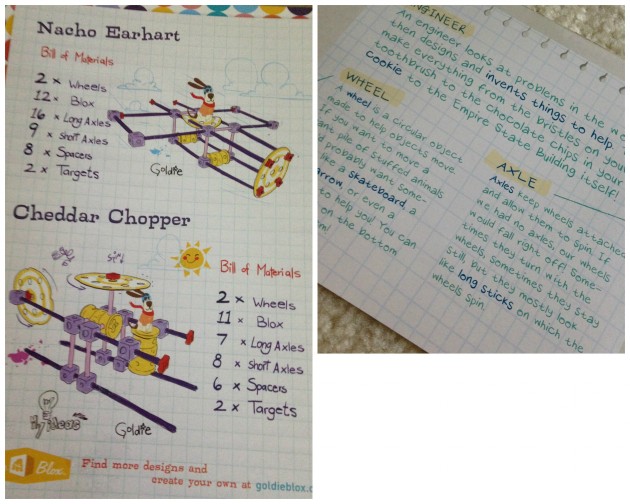 Nacho Earhart
Bill of Materials
2 x Wheels
12 x Blox
16 x Long Axles
9 x Short Axles
8 x Spacers
2 x Targets
Goldie
Cheddar Chopper
Bill of Materials
2 x Wheels
11 x Blox
7 x Long Axles
8 x Short Axles
6 x Spacers
2 x Targets
My ideas
Goldie
Blox
Find more designs and
create your own at goldieblox.c
NGINEER
An engineer looks at problems in the wo
then designs and invents things to help.
make everything from the bristles on your
toothbrush to the Chocolate chips in your
cookie to the Empire State Building itself!
WHEEL
A wheel is a circular object
made to help objects move.
If you want to move a
ant pile of stuffed animals
d probably want some-
like a skateboard, a
arrow, or even a
to help you! You can
on the bottom
m!
AXLE
Axles keep wheels attached
and allow them to spin. If
we had no axles, our wheels
would fall right off! Some-
times they turn with the
wheels, sometimes they stay
still but they mostly look
like long sticks on which the
wheels spin.